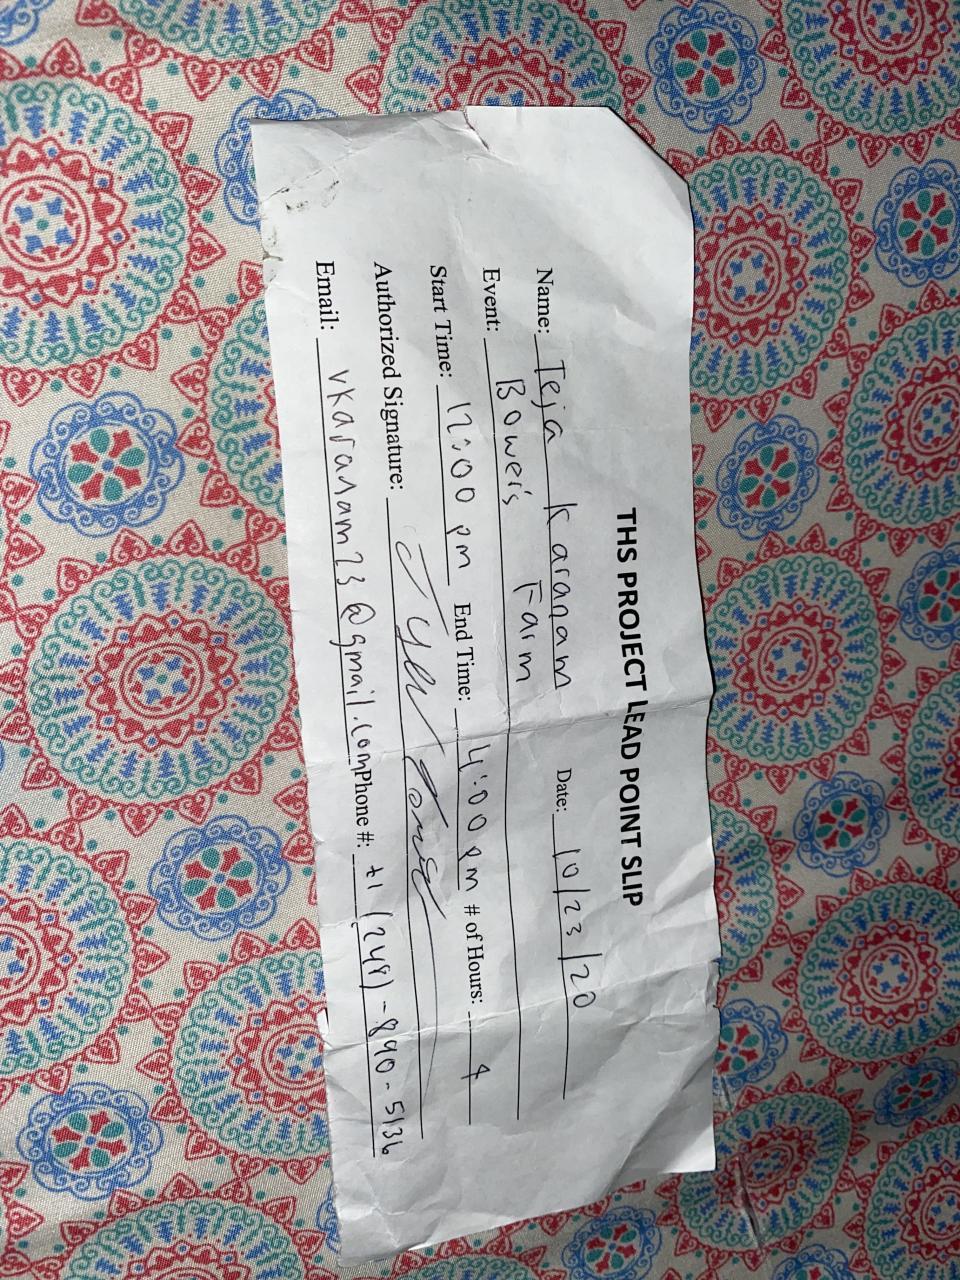 THS PROJECT LEAD POINT SLIP
Name: Teja Karanam Date: 10/23/20
Event: Bower's Farm
Start Time: 12:00 pm End Time: 4:00 pm # of Hours: 4
Authorized Signature:
Email: vkaranam23@gmail.com Phone #: +1 (248)-890-5136